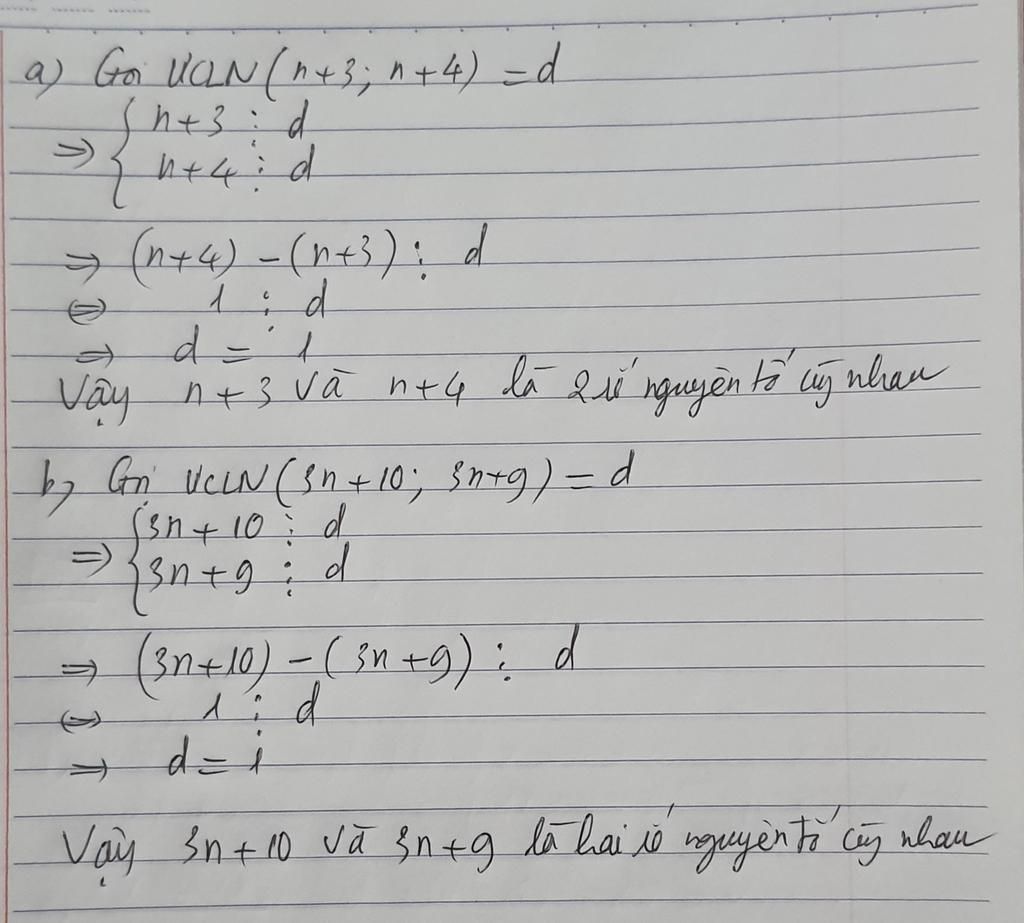 a) Gọi ƯCLN(n+3; n+4) = d
⇒ { n+3 ⋮ d
n+4 ⋮ d
⇒ (n+4) - (n+3) ⋮ d
⇔ 1 ⋮ d
⇒ d = 1
Vậy n+3 và n+4 là 2 số nguyên tố cùng nhau
b) Gọi ƯCLN(3n+10; 3n+9) = d
⇒ { 3n+10 ⋮ d
3n+9 ⋮ d
⇒ (3n+10) - (3n+9) ⋮ d
⇔ 1 ⋮ d
⇒ d = 1
Vậy 3n+10 và 3n+9 là hai số nguyên tố cùng nhau